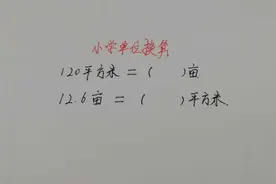 小学单位换算
120平方米 = (    )亩
12.6亩 = (    )平方米.